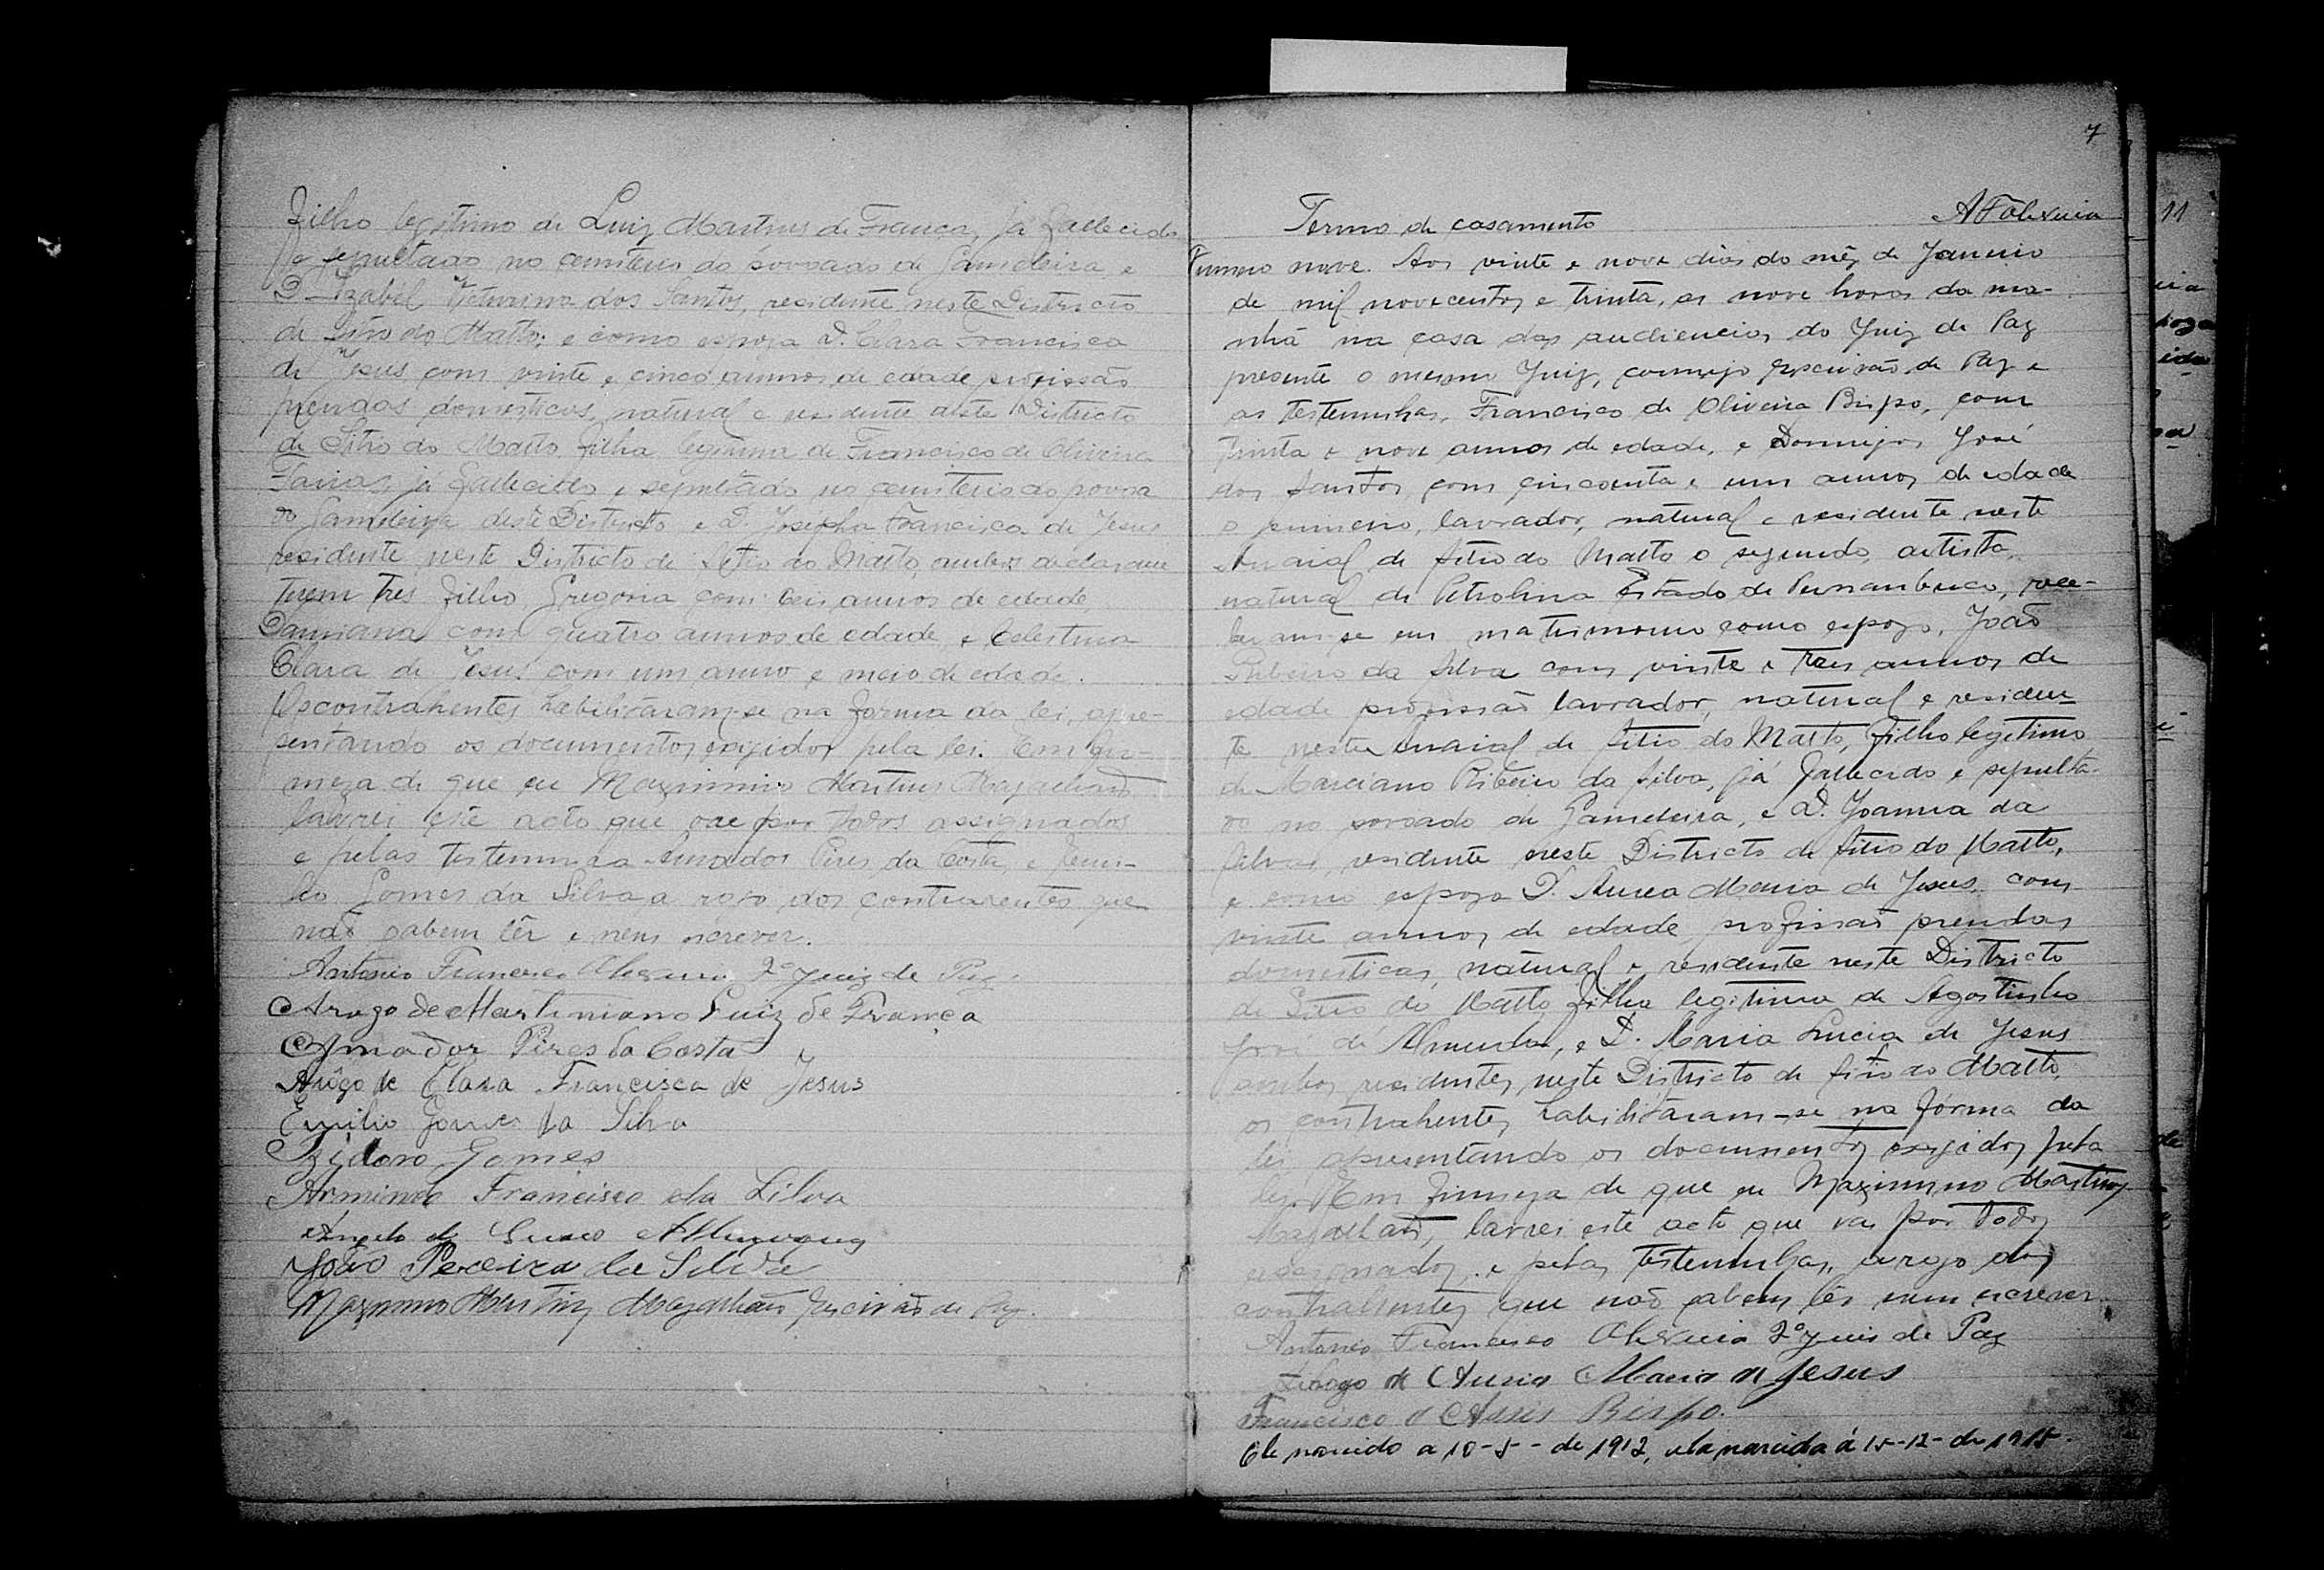 Filho legitimo de Luiz Martins de França, já fallecido
e sepultado no cemiterio do povoado de Gameleira, e
D. Izabel Victurina dos Santos, residente neste Districto
de Sitio do Matto; e como espoza D. Clara Francisca
de Jesus com vinte e cinco annos de edade profissão
prendas domesticas, natural e residente deste Districto
de Sitio do Matto filha legitima de Francisco de Oliveira
Farias, já fallecido e sepultado no cemiterio do povoa
do Gameleira deste Districto e D. Josepha Francisca de Jesus
residente neste Districto de Sitio do Matto, ambos declaram
terem tres filho Gregoria com seis annos de edade
Damiana com quatro annos de edade, e Celestina
Clara de Jesus com um anno e meio de edade.
Os contrahentes habilitaram-se na forma da lei, apre-
sentando os documentos exigidos pela lei. Em fir-
meza de que eu Maximino Martins Magalhães
lavrei este acto que vae por todos assignados
e pelas testemunha Amador Pires da Costa, e
Gomes da Silva, a rogo dos contraentes que
não sabem lêr e nem escrever.
Antonio Francisco 2º Juiz de Paz.
Arogo de Martiniano Luiz de França
Amador Pires da Costa
Arôgo de Clara Francisca de Jesus
Emilio Gomes da Silva
Izidoro Gomes
Arminio Francisco da Silva
Angelo de
João Pereira da Silva
Maximino Martins Magalhães Escrivão de Paz.
7
Termo de casamento
Numero nove. Aos vinte e nove dias do mêz de Janeiro
de mil novecentos e trinta, as nove horas da ma-
nhã na casa das audiencias do Juiz de Paz
presente o mesmo Juiz, comigo Escrivão de Paz e
as testemunhas, Francisco de Oliveira Bispo, com
trinta e nove annos de edade, e Domingos José
dos Santos, com cincoenta e um annos de edade
o primeiro, lavrador, natural e residente neste
Arraial de Sitio do Matto o segundo, artista,
natural de Petrolina Estado de Pernambuco, rece-
beram-se em matrimonio como espozo, João
Ribeiro da Silva com vinte e tres annos de
edade profissão lavrador, natural e residen-
te neste arraial de Sitio do Matto, filho legitimo
de Marciano Ribeiro da Silva, já fallecido e sepulta-
do no povoado de Gameleira, e D. Joanna da
Silva, residente neste Districto de Sitio do Matto,
e como espoza D. Aurea Maria de Jesus, com
vinte annos de edade profissão prendas
domesticas, natural e residente neste Districto
de Sitio do Matto filha legitima de Agostinho
José de Almeida, e D. Maria Lucia de Jesus
ambos residentes neste Districto de Sitio do Matto,
os contrahentes habilitaram-se na fórma da
lei apresentando os documentos exigidos pela
lei. Em firmeza de que eu Maximino Martins
Magalhães, lavrei este acto que vae por todos
assignados, e pelas testemunhas, arogo dos
contrahentes que não sabem lêr nem escrever.
Antonio Francisco 2º Juis de Paz
Arogo de Aurea Maria de Jesus
Francisco d Assis Bispo.
Ele nascido a 10-5- de 1912, ela nascida á 15-12- de 1915.
11